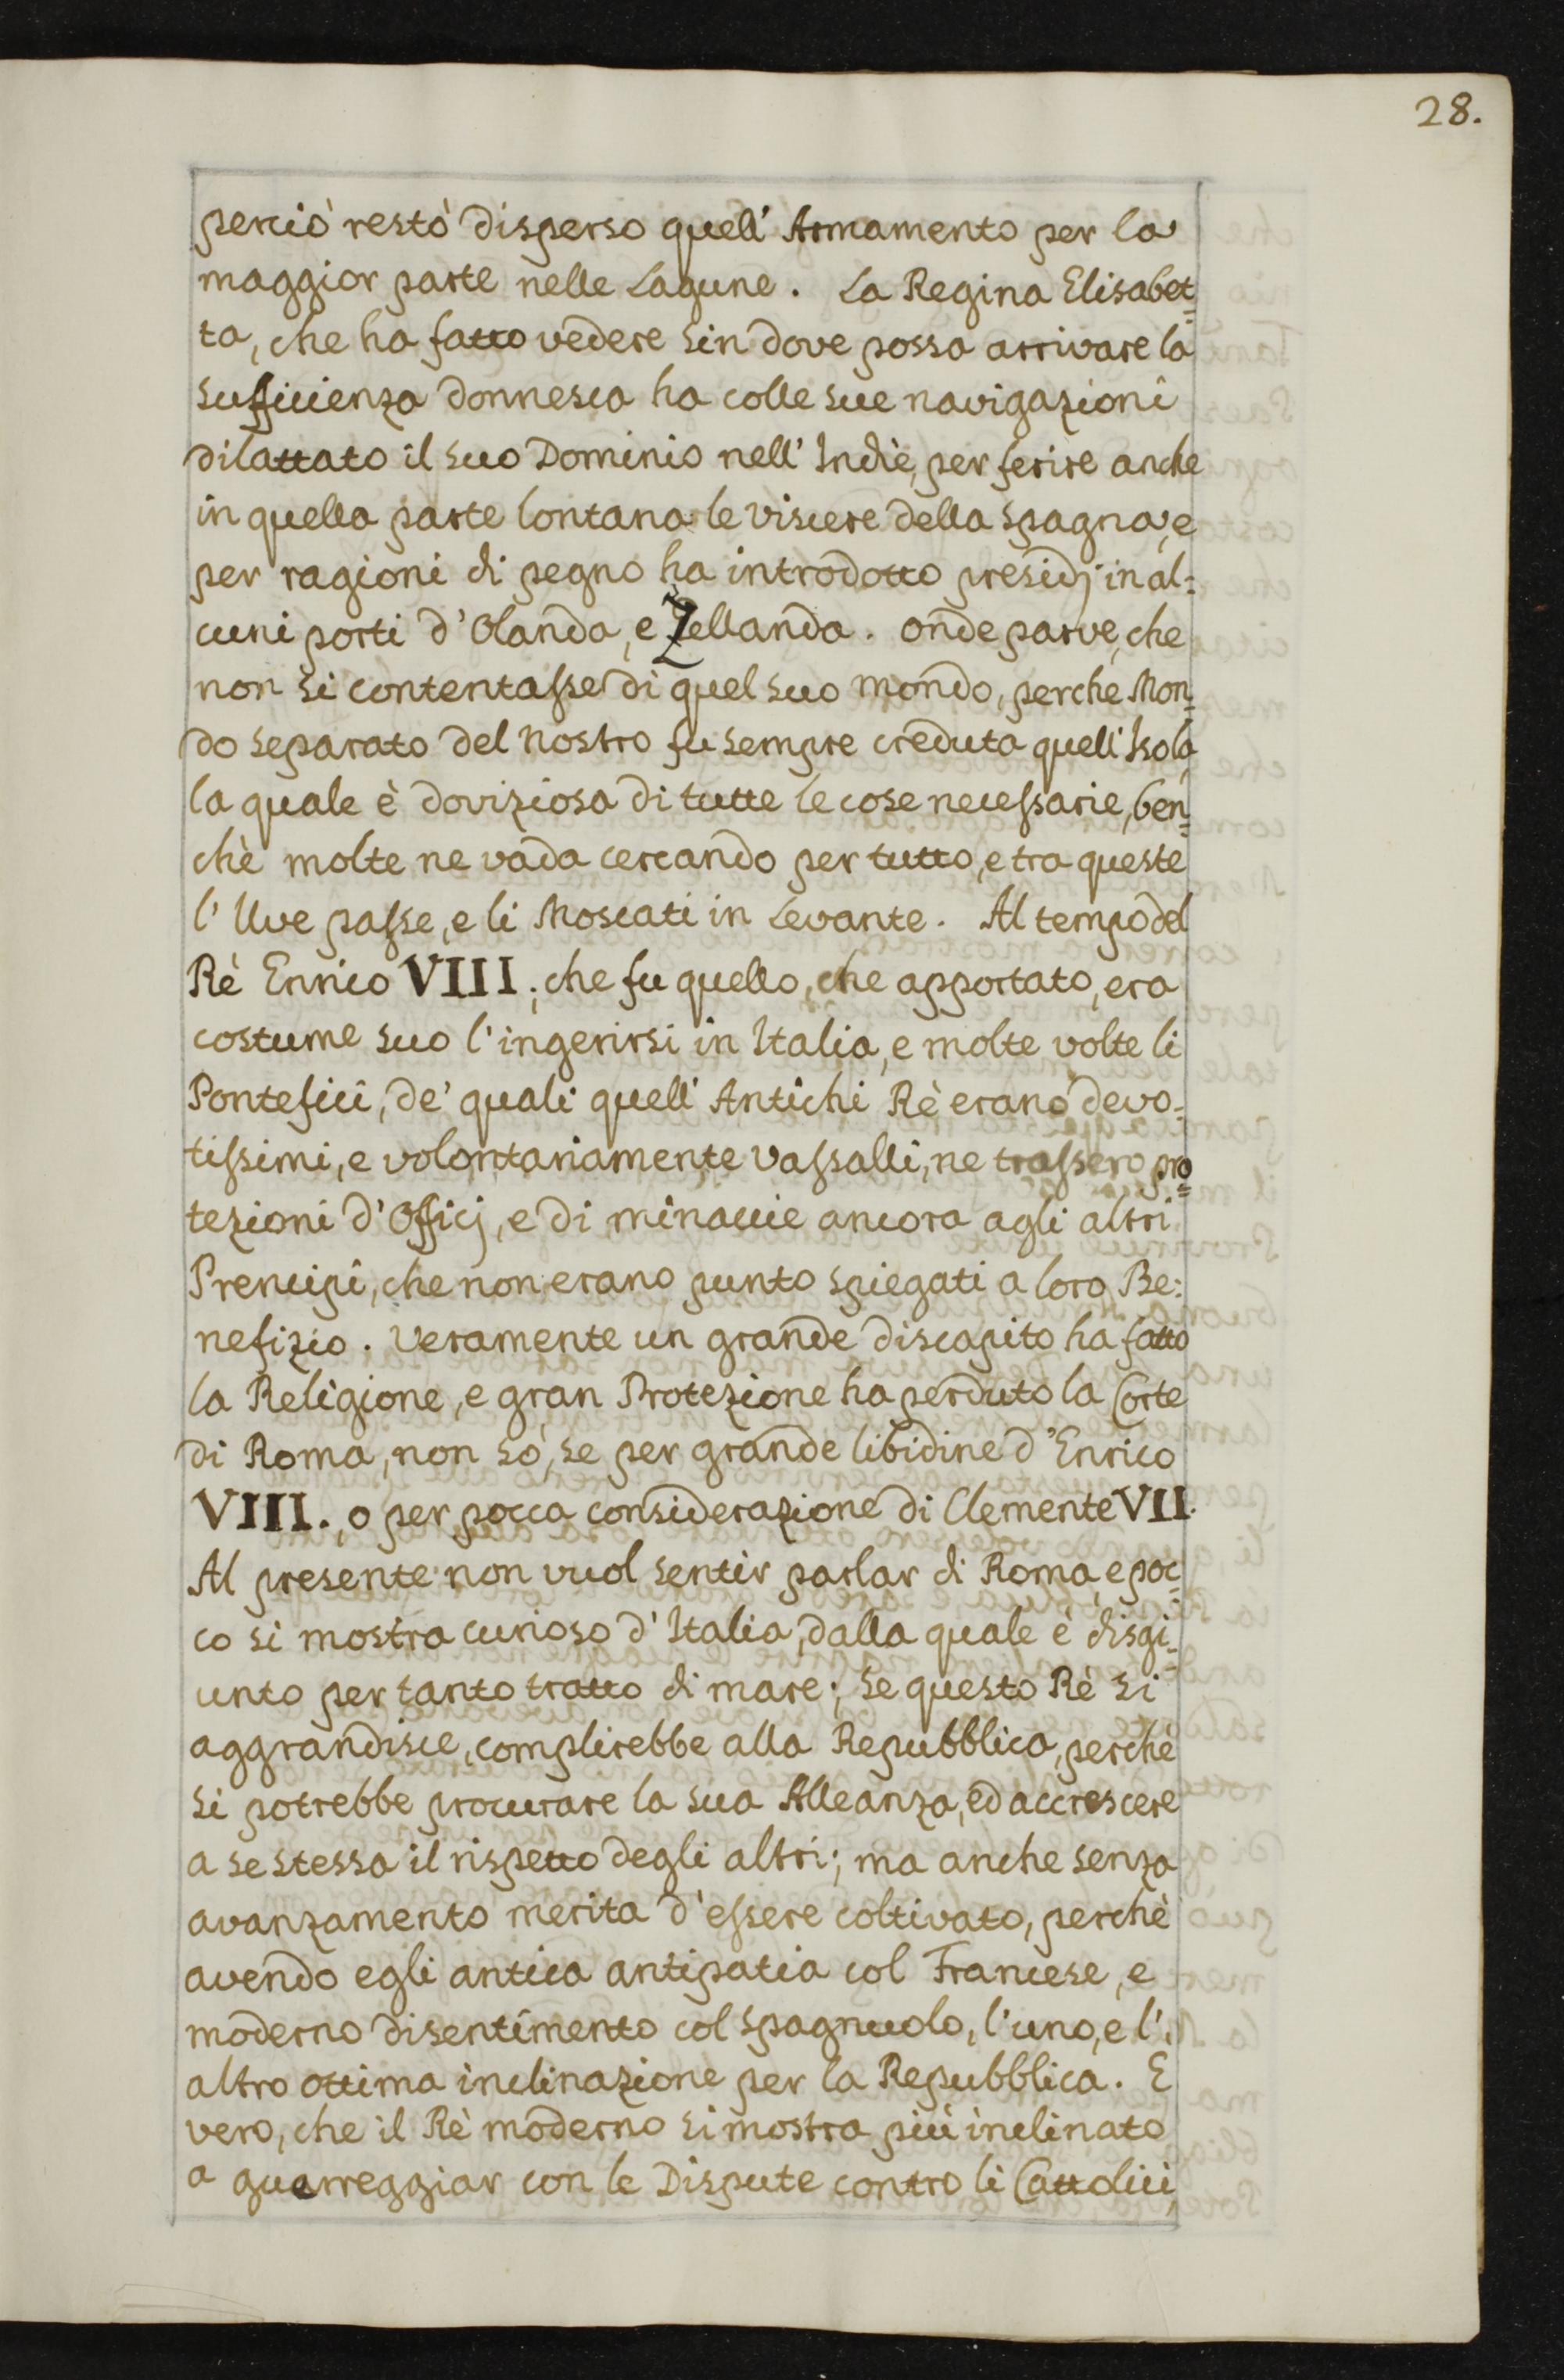 28.
perciò restò disperso quell' Armamento per la
maggior parte nelle Lagune. La Regina Elisabet=
ta, che ha fatto vedere sin dove possa arrivare la
sufficienza donnesca ha colle sue navigazioni
dilattato il suo Dominio nell' Indie, per ferire anche
in quella parte lontana le viscere della Spagna, e
per ragioni di pegno ha introdotto presidj in al=
cuni porti d' Olanda, e Zellanda. onde parve, che
non si contentasse di quel suo mondo, perche Mon=
do separato del nostro fu sempre creduta quell' Isola,
la quale è doviziosa di tutte le cose necessarie, ben=
chè molte ne vada cercando per tutto, e tra queste
l' Uve passe, e li Moscati in Levante. Al tempo del
Rè Enrico VIII., che fu quello, che apportato, era
costume suo l' ingerirsi in Italia, e molte volte li
Pontefici, de' quali quell' Antichi Rè erano devo=
tissimi, e volontariamente vassalli, ne trassero pro=
tezioni d' Officj, e di minaccie ancora agli altri
Prencipi, che non erano punto spiegati a loro Be=
nefizio. Veramente un grande discapito ha fatto
la Religione, e gran Protezione ha perduto la Corte
di Roma, non sò, se per grande libidine d' Enrico
VIII., o per pocca considerazione di Clemente VII.
Al presente non vuol sentir parlar di Roma, e poc=
co si mostra curioso d' Italia, dalla quale è disgi=
unto per tanto tratto di mare; se questo Rè si
aggrandisce, complirebbe alla Repubblica, perchè
si potrebbe procurare la sua Alleanza, ed accrescere
a se stessa il rispetto degli altri; ma anche senza
avanzamento merita d' essere coltivato, perchè
avendo egli antica antipatia col Francese, e
moderno disentimento col Spagnuolo, l' uno, e l'
altro ottima inclinazione per la Repubblica. E
vero, che il Rè moderno si mostra più inclinato
a guerreggiar con le Dispute contro li Cattolici,